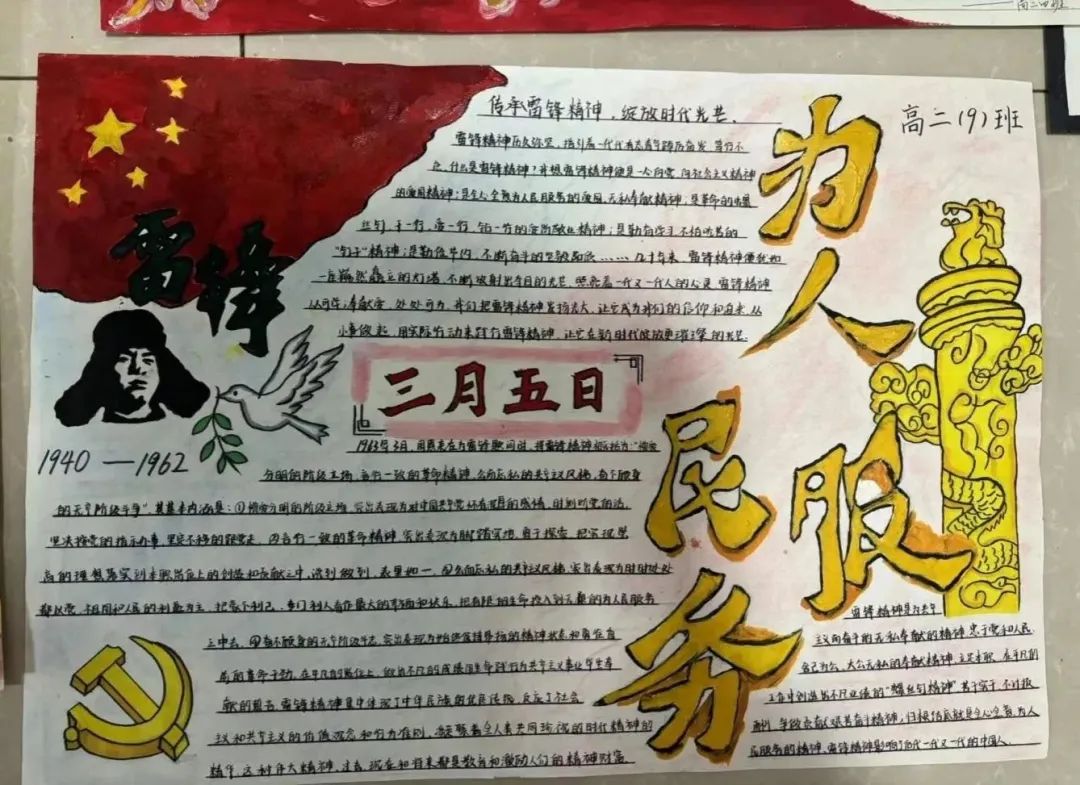 高二四班
传承雷锋精神，绽放时代光芒、
高二(9)班
雷锋精神历久弥坚，指引着一代代有志青年踔厉奋发、笃行不
怠。什么是雷锋精神？我想雷锋精神便是一个向党、向社会主义精神
的爱国精神；是全心全意为人民服务的爱国、无私奉献精神；是革命的螺
丝钉，干一行、爱一行、钻一行的爱岗敬业精神；是勤奋学习不怕吃苦的
"钉子"精神；是勤俭节约、不断奋斗的
几十年来，雷锋精神便犹如
一座巍然矗立的灯塔，不断放射出夺目的光芒，照亮着一代又一代人的心灵。雷锋精神
从何学：奉献爱，处处可为，我们把雷锋精神发扬光大，让它成为我们的信仰和自来，从
小事做起，用实际行动来践行雷锋精神，让它在新时代绽放更璀璨的光芒.
为人民服务
雷锋
1940 — 1962
三月五日
1963年3月，周恩来在为雷锋题词时，把雷锋精神概括为："憎爱
分明的阶级立场、言行一致的革命精神、公而忘私的共产主义风格、奋不顾身
的无产阶级斗争"其基本内涵是：①憎爱分明的阶级立场，突出表现为对中国共产党怀有深厚的感情，时刻听党的话，
坚决按党的指示办事，坚定不移的跟党走，②言行一致的革命精神，突出表现为脚踏实地，勇于探索，把实现崇
高的理想落实到本职岗位上的创造和贡献之中，说到做到，表里如一，③公而忘私的共产主义风格，突出表现为时时处处
都以党、祖国和人民的利益为主，把
自己，专门利人看作最大的幸福和快乐，把有限的生命投入到无囊的为人民服务
之中去。④奋不顾身的无产阶级斗志，突出表现为始终保持昂扬的精神状态和奋发有
为的革命干劲，在平凡的岗位上，做出不凡的成绩用生命践行为共产主义事业毕生奉
献的誓言。雷锋精神集中体现了中华民族的优良传统，反应了社会
主义和共产主义的价值观念和行为准则，凝聚着全人类共同珍视的时代精神的
精华。这种伟大精神，过去、现在和将来都是教育和激励人们的精神财富
雷锋精神是为共产
主义而奋斗的无私奉献的精神，忠于党和人民、
舍己为公、大公无私的奉献精神，立足本职、在平凡的
工作中创造出不凡业绩的"螺丝钉精神"，苦干实干、不计报
酬、争做贡献
艰苦奋斗精神，归根结底就是全心全意为人
民服务的精神。雷锋精神影响了后代一代又一代的中国人.